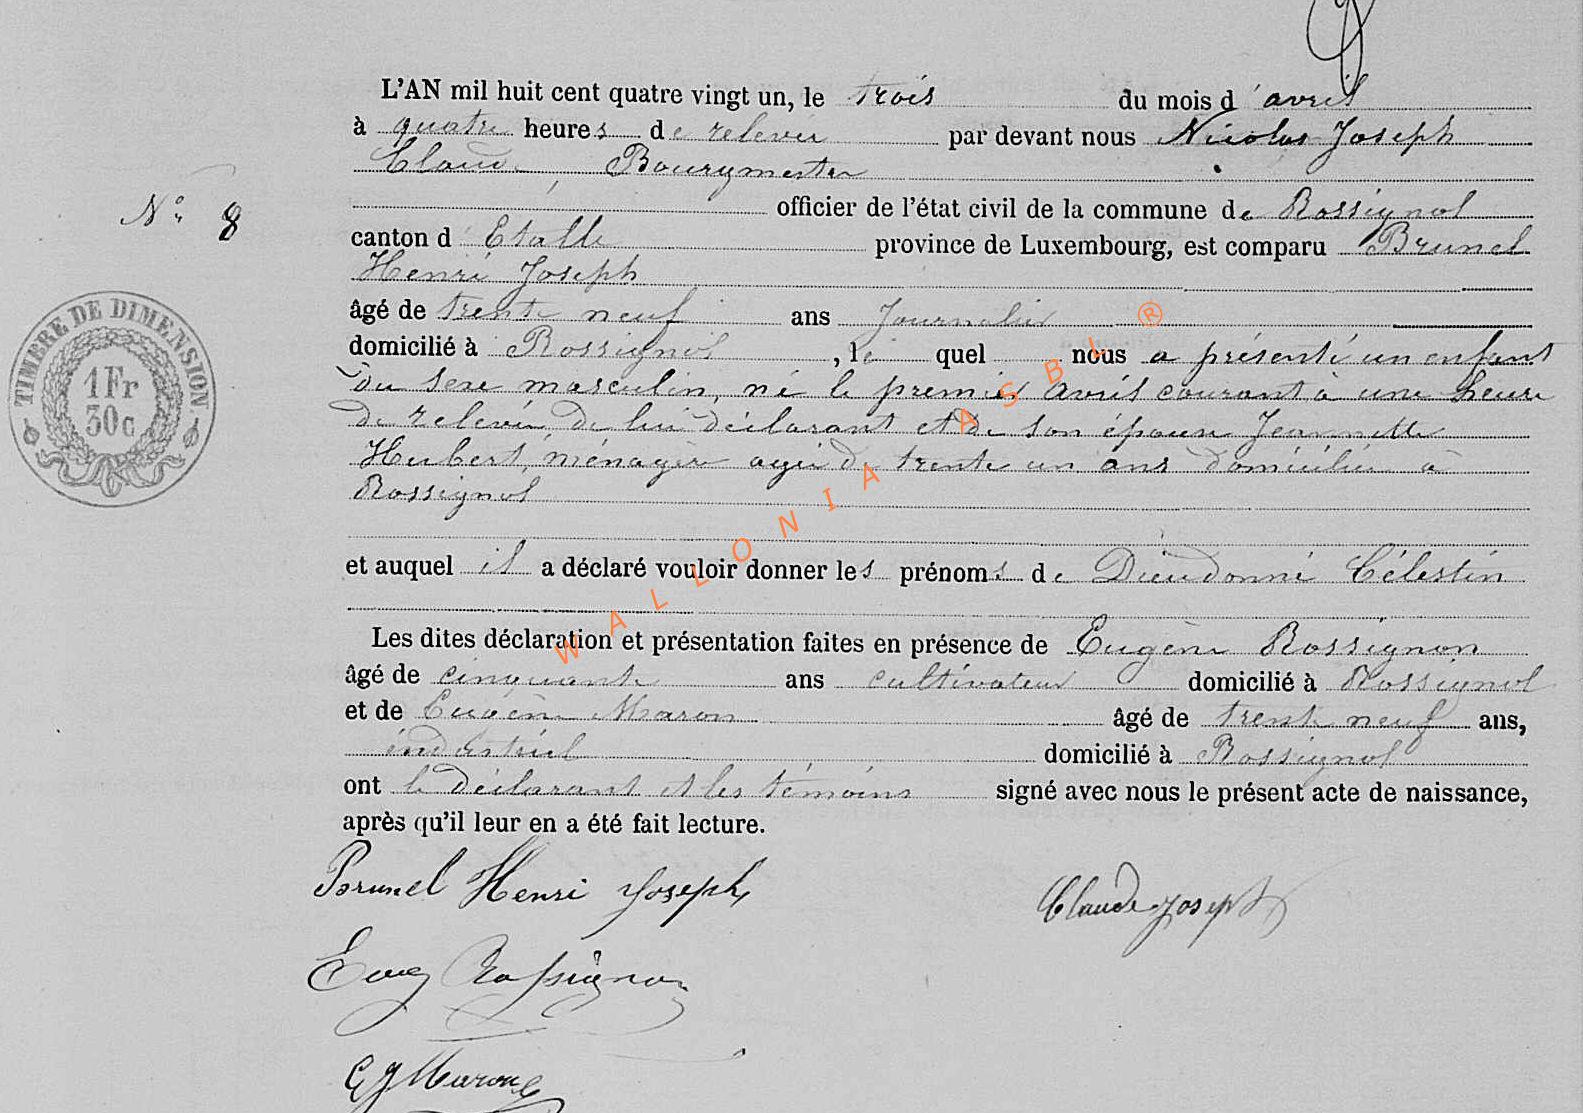 L'AN mil huit cent quatre vingt un, le trois du mois d'avril
à quatre heures de relevée par devant nous Nicolas Joseph
Claude, Bourgmestre
officier de l'état civil de la commune de Rossignol
N° 8
canton d'Etalle province de Luxembourg, est comparu Brunel
Henri Joseph
âgé de trente neuf ans Journalier
domicilié à Rossignol, le quel nous a présenté un enfant
du sexe masculin, né le premier avril courant à une heure
de relevée de lui déclarant et de son épouse Jeannette
Hubert, ménagère agée de trente un ans domiciliée à
Rossignol
et auquel il a déclaré vouloir donner les prénoms de Dieudonné Célestin
Les dites déclaration et présentation faites en présence de Eugène Rossignon
âgé de cinquante ans cultivateur domicilié à Rossignol
et de Eugène Maron âgé de trente neuf ans,
industriel domicilié à Rossignol
ont le déclarant et les témoins signé avec nous le présent acte de naissance,
après qu'il leur en a été fait lecture.
Brunel Henri Joseph
Claude Joseph
Eug Rossignon
TIMBRE DE DIMENSION
1Fr
30c
WALLONIA ASBL ®